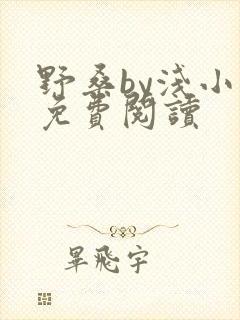 野桑by浅小
免費閱讀
畢飛宇